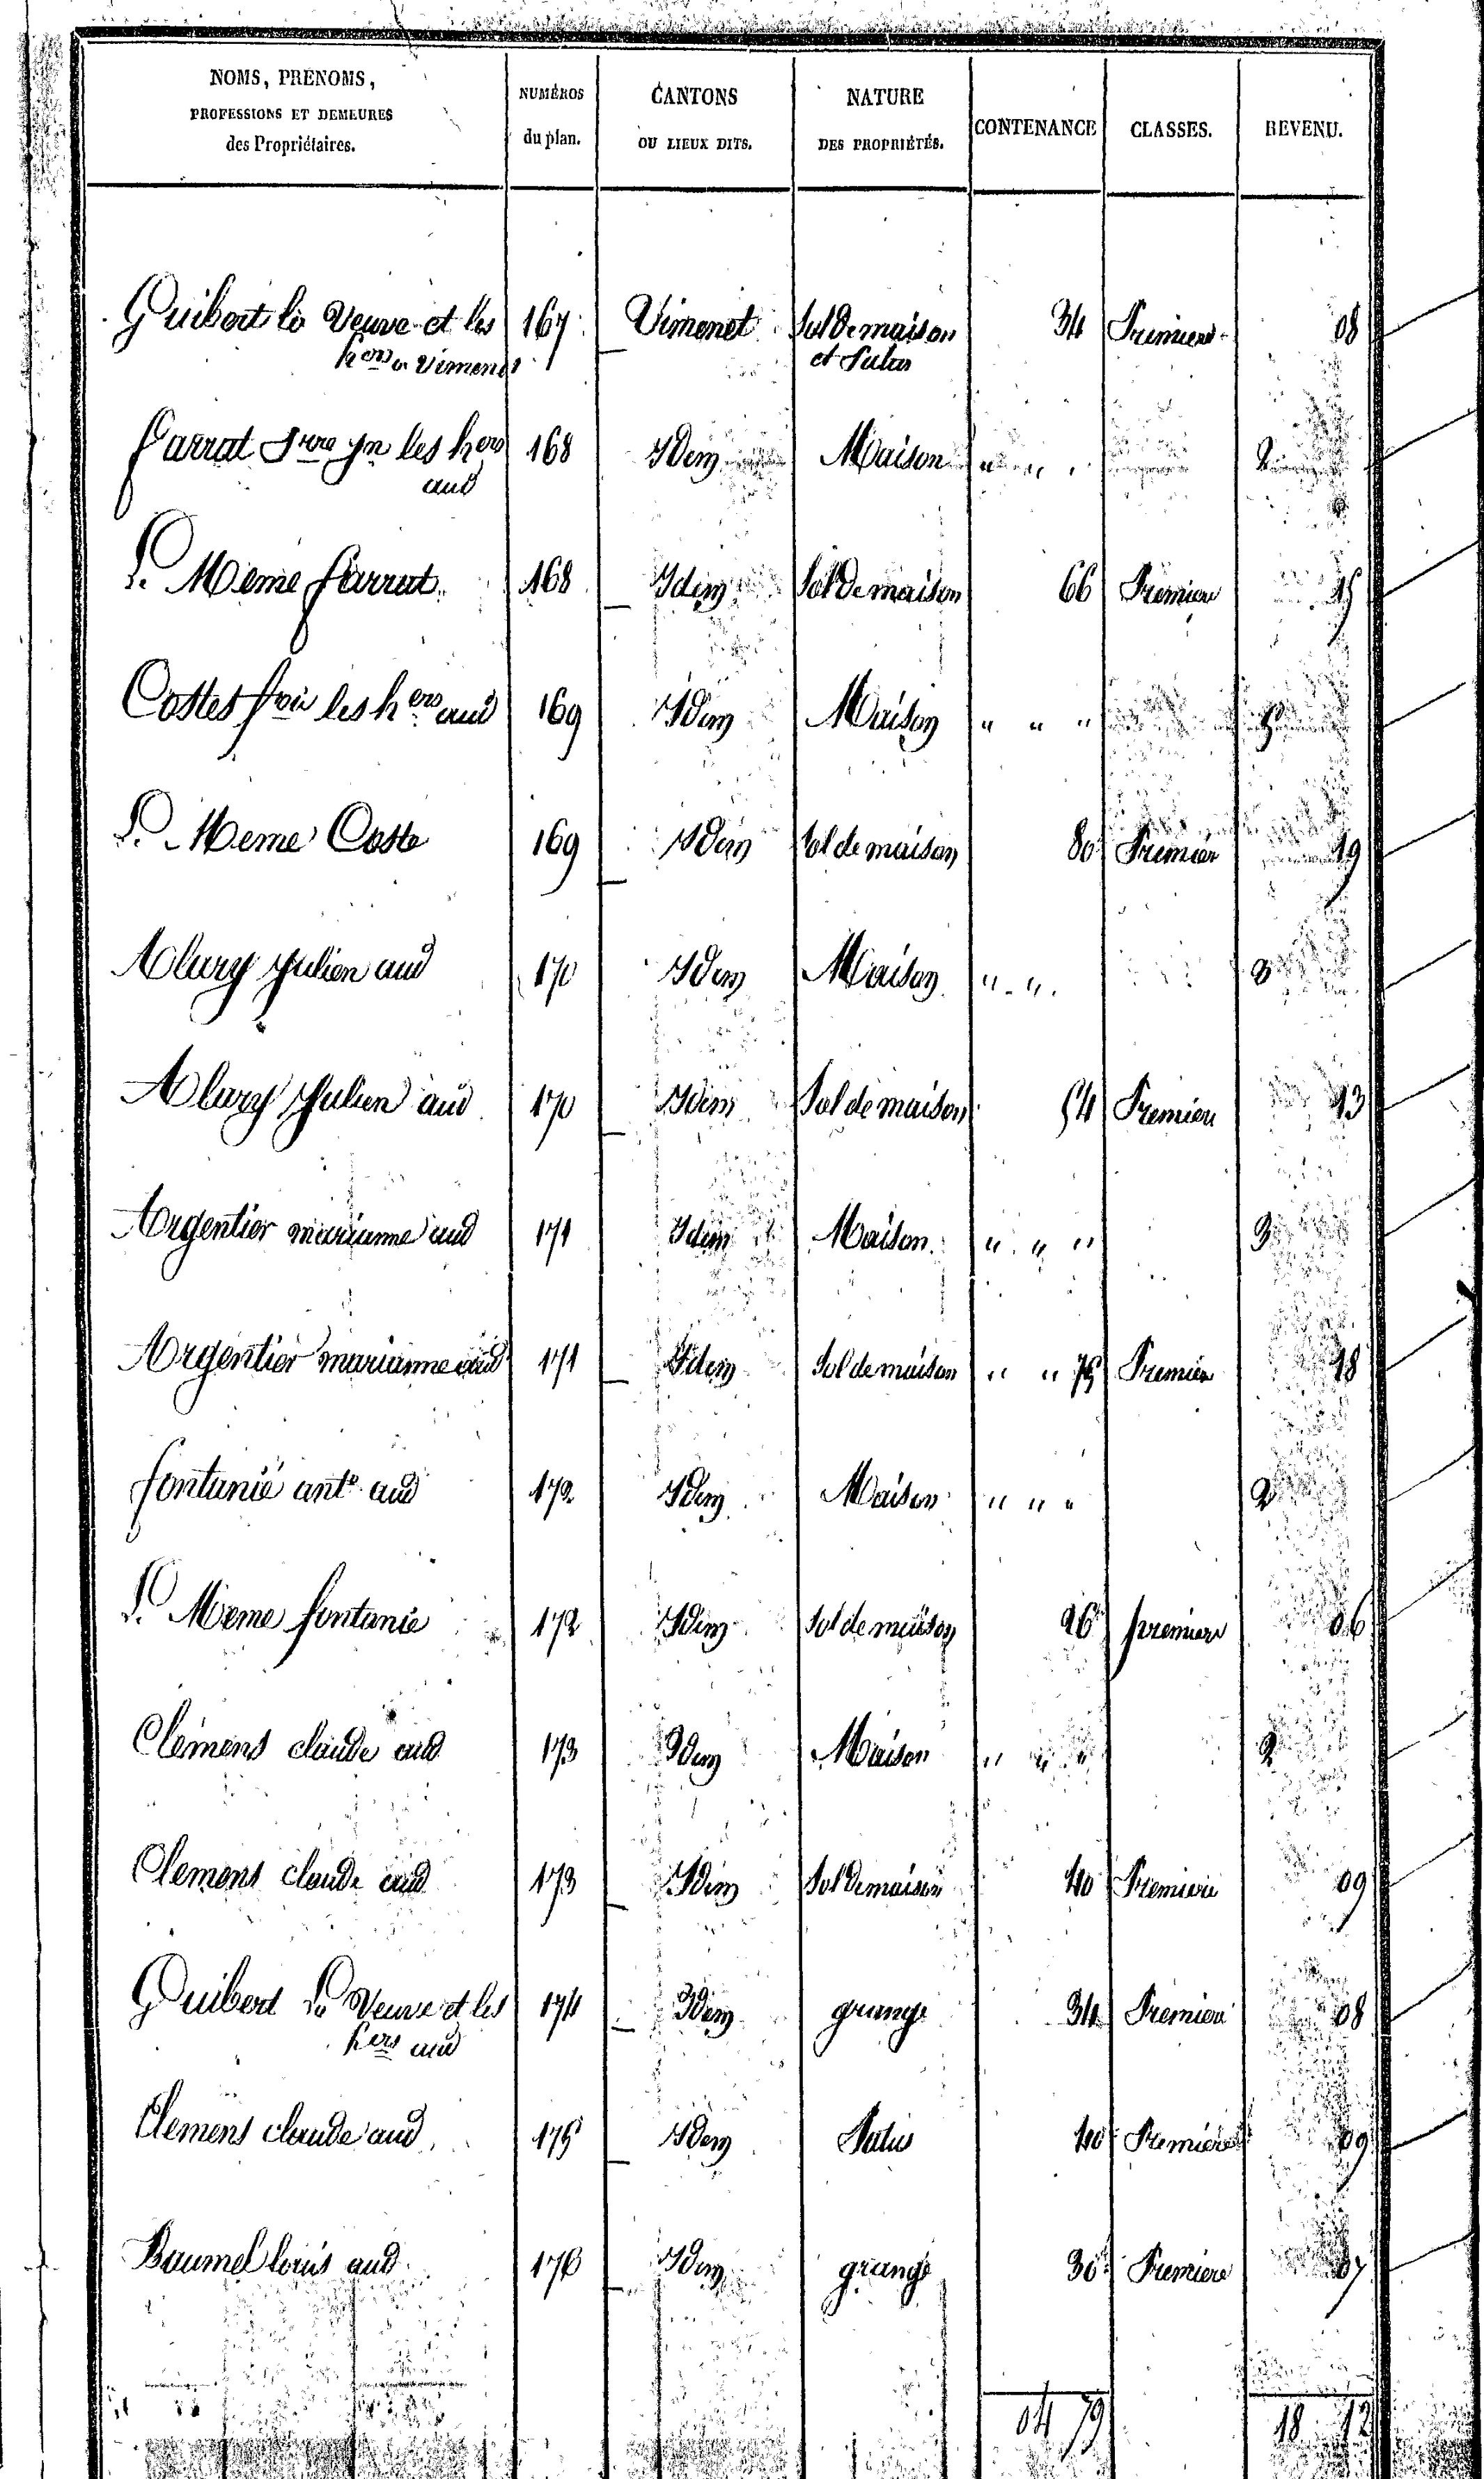 NOMS, PRÉNOMS, PROFESSIONS ET DEMEURES des Propriétaires. NUMÉROS du plan. CANTONS OU LIEUX DITS. NATURE DES PROPRIÉTÉS. CONTENANCE CLASSES. REVENU.
Guibert la Veuve et les 167 Vimenet Sol de maison 34 Premiere 08
hers a Vimenet et Patus
farrat les hers 168 Idem Maison " " 2
aud
L. Meme farrat 168 Idem Sol de maison 66 Premiere 15
Costes les hers aud 169 Idem Maison " " " 5
L. Meme Coste 169 Idem Sol de maison 80 Premier 19
Alary Julien aud 170 Idem Maison " " 3
Alary Julien aud 170 Idem Sol de maison 54 Premiere 13
Argentier marianne aud 171 Idem Maison " " " 3
Argentier marianne aud 171 Idem Sol de maison " " 75 Premier 18
fontanié ante aud 172 Idem Maison " " " 2
L. Meme fontanie 172 Idem Sol de maison 26 premiere 06
Clémens claude aud 173 Idem Maison " " " 2
Clemens claude aud 173 Idem Sol de maison 40 Premiere 09
Guibert La Veuve et les 174 Idem grange 34 Premiere 08
hers aud
Clemens claude aud 175 Idem Patus 40 Premiere 09
Baumel louis aud 176 Idem grange 30 Premiere 07
04 79 18 12